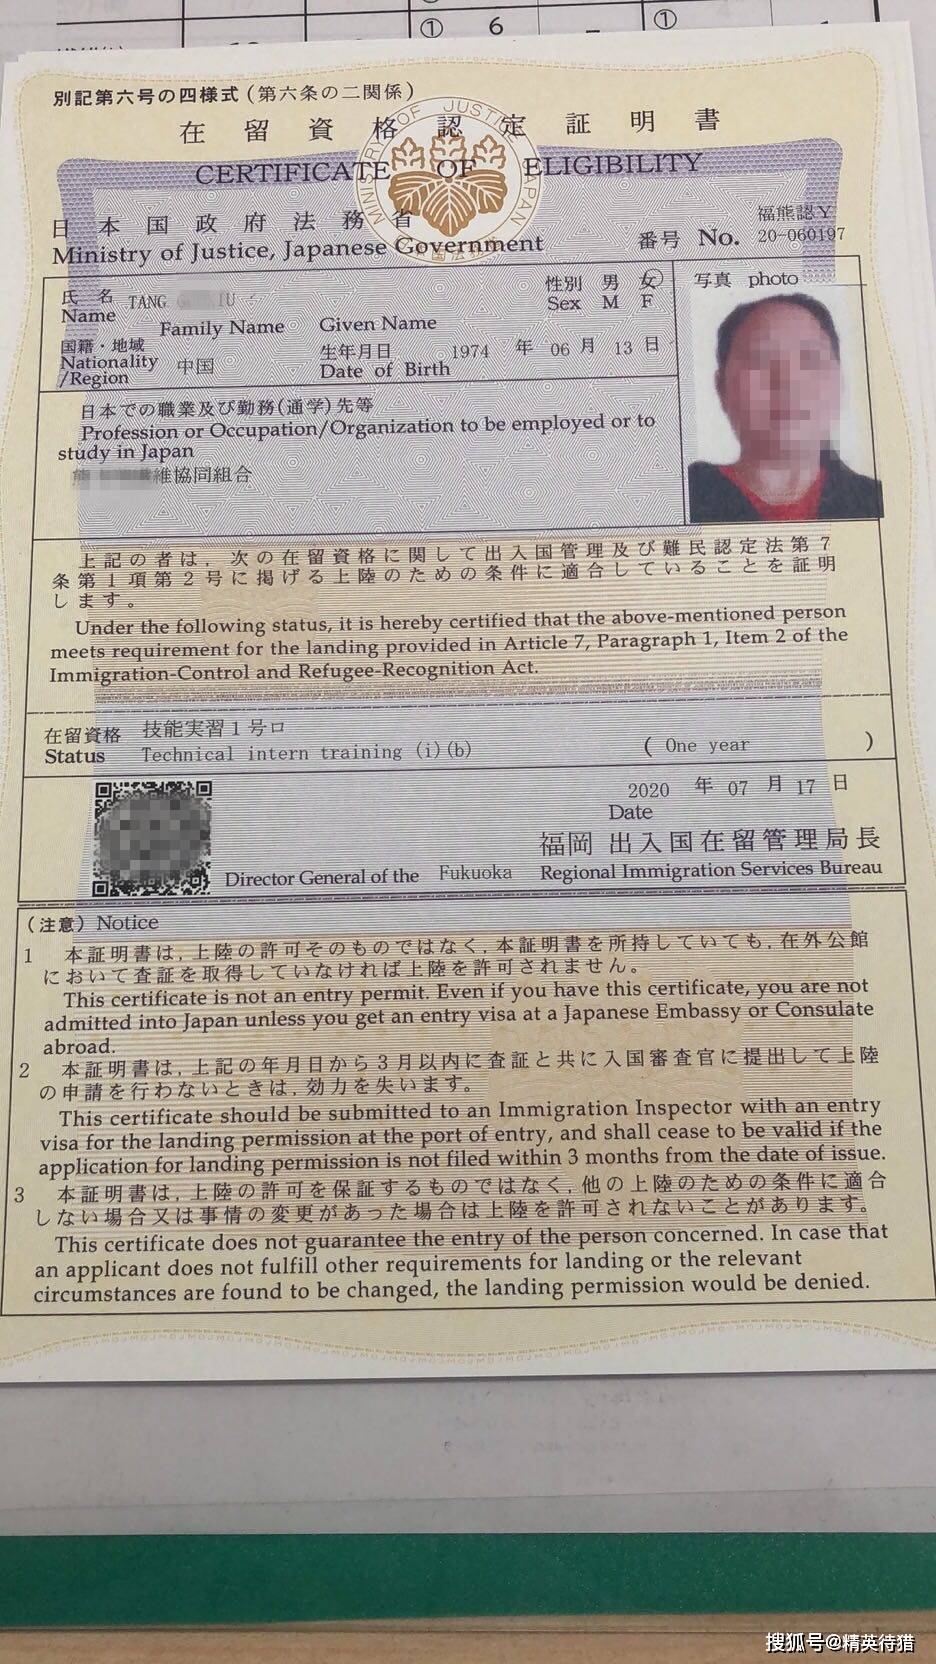 ① 6 ①
別記第六号の四様式(第六条の二関係)
在留資格認定証明書
CERTIFICATE OF ELIGIBILITY
MINISTRY OF JUSTICE JAPAN
日本国政府法務省
Ministry of Justice, Japanese Government
福熊認Y
番号 No. 20-060197
氏名 TANG IU
Name
Family Name Given Name
性別 男 女
Sex M F
写真 photo
国籍・地域
Nationality
/Region 中国
生年月日 1974 年 06 月 13 日
Date of Birth
日本での職業及び勤務(通学)先等
Profession or Occupation/Organization to be employed or to
study in Japan
維協同組合
上記の者は,次の在留資格に関して出入国管理及び難民認定法第7
条第1項第2号に掲げる上陸のための条件に適合していることを証明
します。
Under the following status, it is hereby certified that the above-mentioned person
meets requirement for the landing provided in Article 7, Paragraph 1, Item 2 of the
Immigration-Control and Refugee-Recognition Act.
在留資格 技能実習1号ロ
Status Technical intern training (i)(b) ( One year )
2020 年 07 月 17 日
Date
福岡 出入国在留管理局長
Director General of the Fukuoka Regional Immigration Services Bureau
(注意) Notice
1 本証明書は,上陸の許可そのものではなく,本証明書を所持していても,在外公館
において査証を取得していなければ上陸を許可されません。
This certificate is not an entry permit. Even if you have this certificate, you are not
admitted into Japan unless you get an entry visa at a Japanese Embassy or Consulate
abroad.
2 本証明書は,上記の年月日から3月以内に査証と共に入国審査官に提出して上陸
の申請を行わないときは,効力を失います。
This certificate should be submitted to an Immigration Inspector with an entry
visa for the landing permission at the port of entry, and shall cease to be valid if the
application for landing permission is not filed within 3 months from the date of issue.
3 本証明書は,上陸の許可を保証するものではなく,他の上陸のための条件に適合
しない場合又は事情の変更があった場合は上陸を許可されないことがあります。
This certificate does not guarantee the entry of the person concerned. In case that
an applicant does not fulfill other requirements for landing or the relevant
circumstances are found to be changed, the landing permission would be denied.
搜狐号@精英待猎